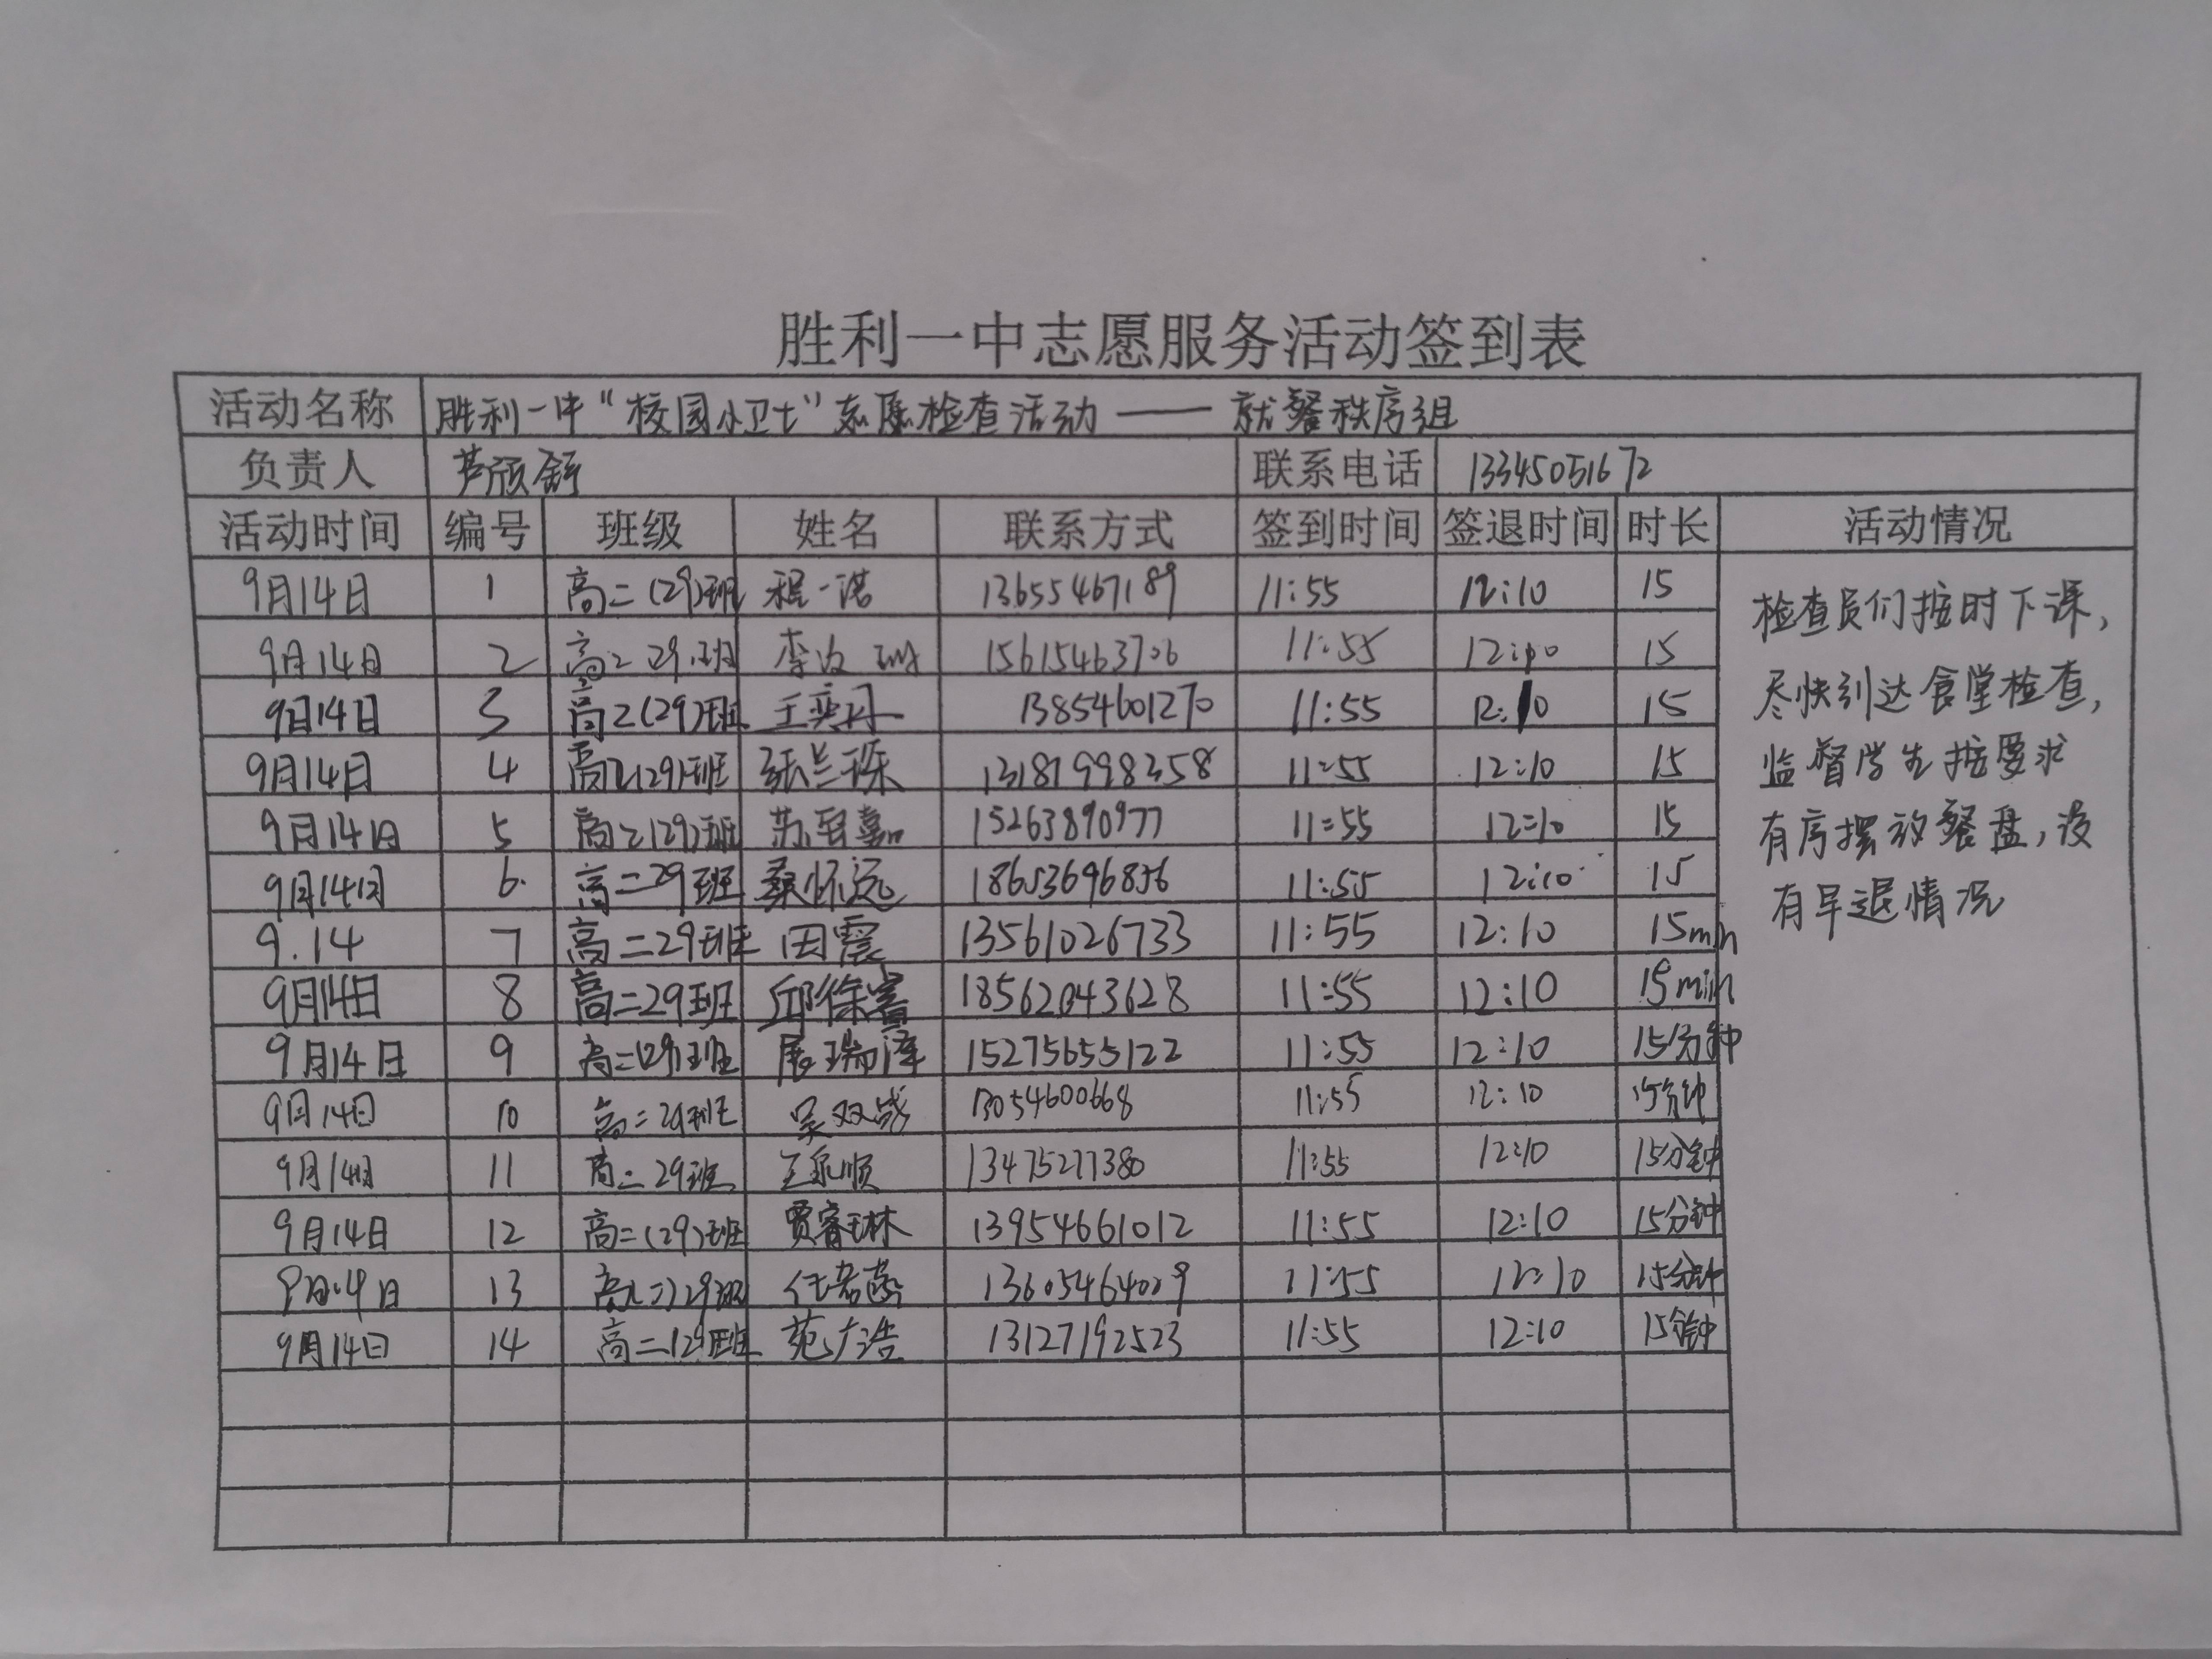 胜利一中志愿服务活动签到表
活动名称 胜利一中“校园小卫士”志愿检查活动——就餐秩序组
负责人 联系电话 13345051672
活动时间 编号 班级 姓名 联系方式 签到时间 签退时间 时长 活动情况
9月14日 1 高二(29)班 程一诺 13655467189 11:55 12:10 15
9月14日 2 高二29班 15615463706 11:55 12:10 15
9月14日 3 高二(29)班 王奕丹 13854601270 11:55 12:10 15
9月14日 4 高二(29)班 张兰琛 13181998358 11:55 12:10 15
9月14日 5 高二(29)班 15263890977 11:55 12:10 15
9月14日 6. 高二29班 桑怀远 18653696856 11:55 12:10 15
9.14 7 高二29班 田震 13561026733 11:55 12:10 15min
9月14日 8 高二29班 邱徐睿 18562043628 11:55 12:10 15min
9月14日 9 高二(29)班 展瑞泽 15275655122 11:55 12:10 15分钟
9月14日 10 高二29班 13054600668 11:55 12:10 15分钟
9月14日 11 高二29班 王永顺 13475277380 11:55 12:10 15分钟
9月14日 12 高二(29)班 贾睿琳 13954661012 11:55 12:10 15分钟
9月14日 13 高(二)29班 13605464029 11:55 12:10 15分钟
9月14日 14 高二(29)班 苑广浩 13127192523 11:55 12:10 15分钟
检查员们按时下课,
尽快到达食堂检查,
监督学生按要求
有序摆放餐盘,没
有早退情况